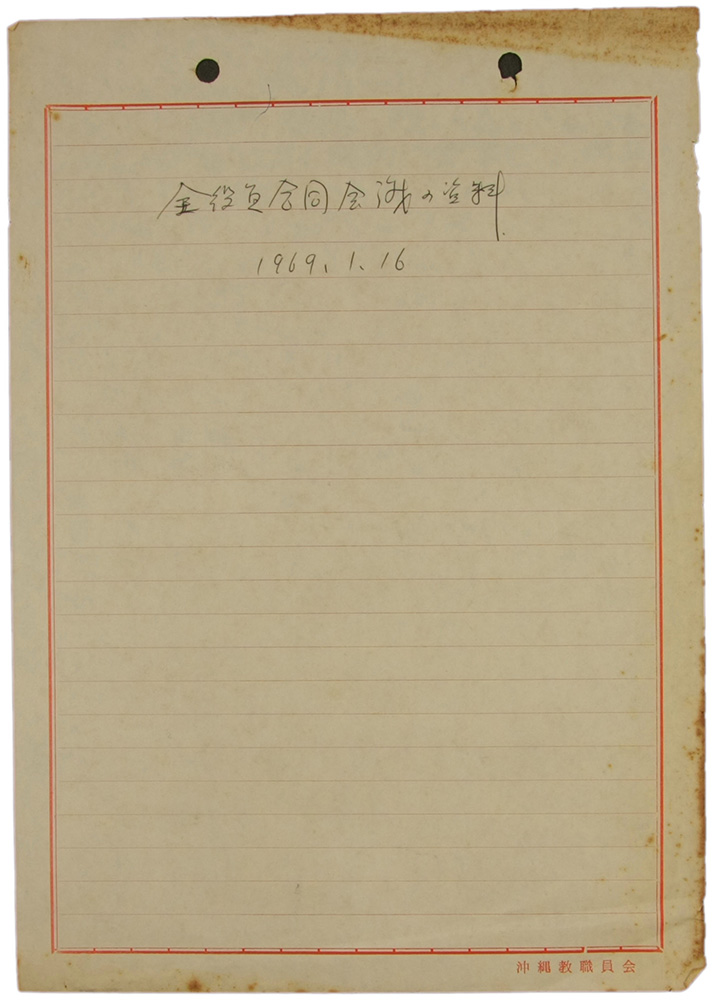 全役員合同会議の資料
1969.1.16
沖縄教職員会